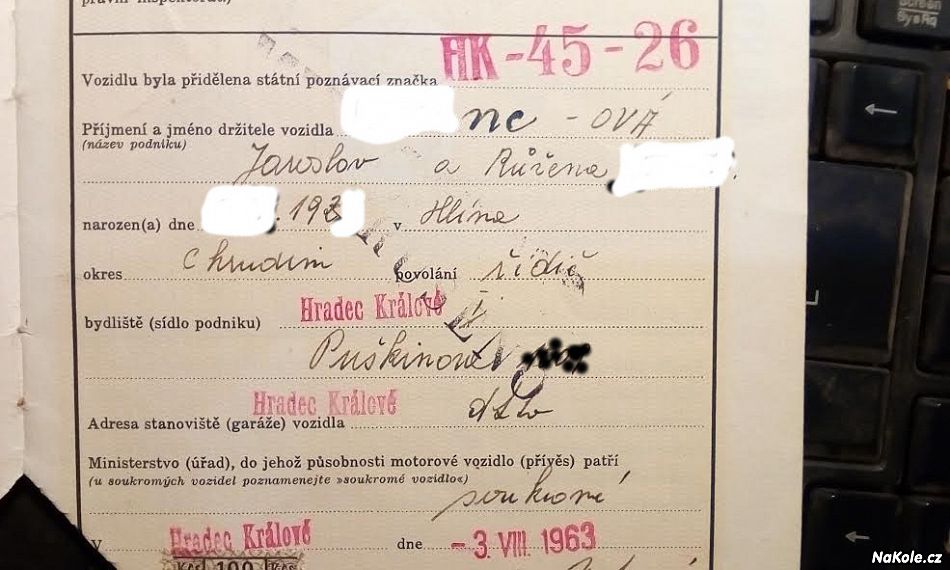 HK-45-26
Vozidlu byla přidělena státní poznávací značka
Příjmení a jméno držitele vozidla nc - OVÁ
(název podniku)
Jaroslav a Růžena
narozen(a) dne 19 v Hlína
okres Chrudim povolání řidič
Hradec Králové
bydliště (sídlo podniku)
Puškinova
Hradec Králové
Adresa stanoviště (garáže) vozidla
Ministerstvo (úřad), do jehož působnosti motorové vozidlo (přívěs) patří
(u soukromých vozidel poznamenejte »soukromé vozidlo«)
soukromé
V Hradec Králové dne - 3. VIII. 1963
Kčs 100 Kčs
SysRq
NaKole.cz